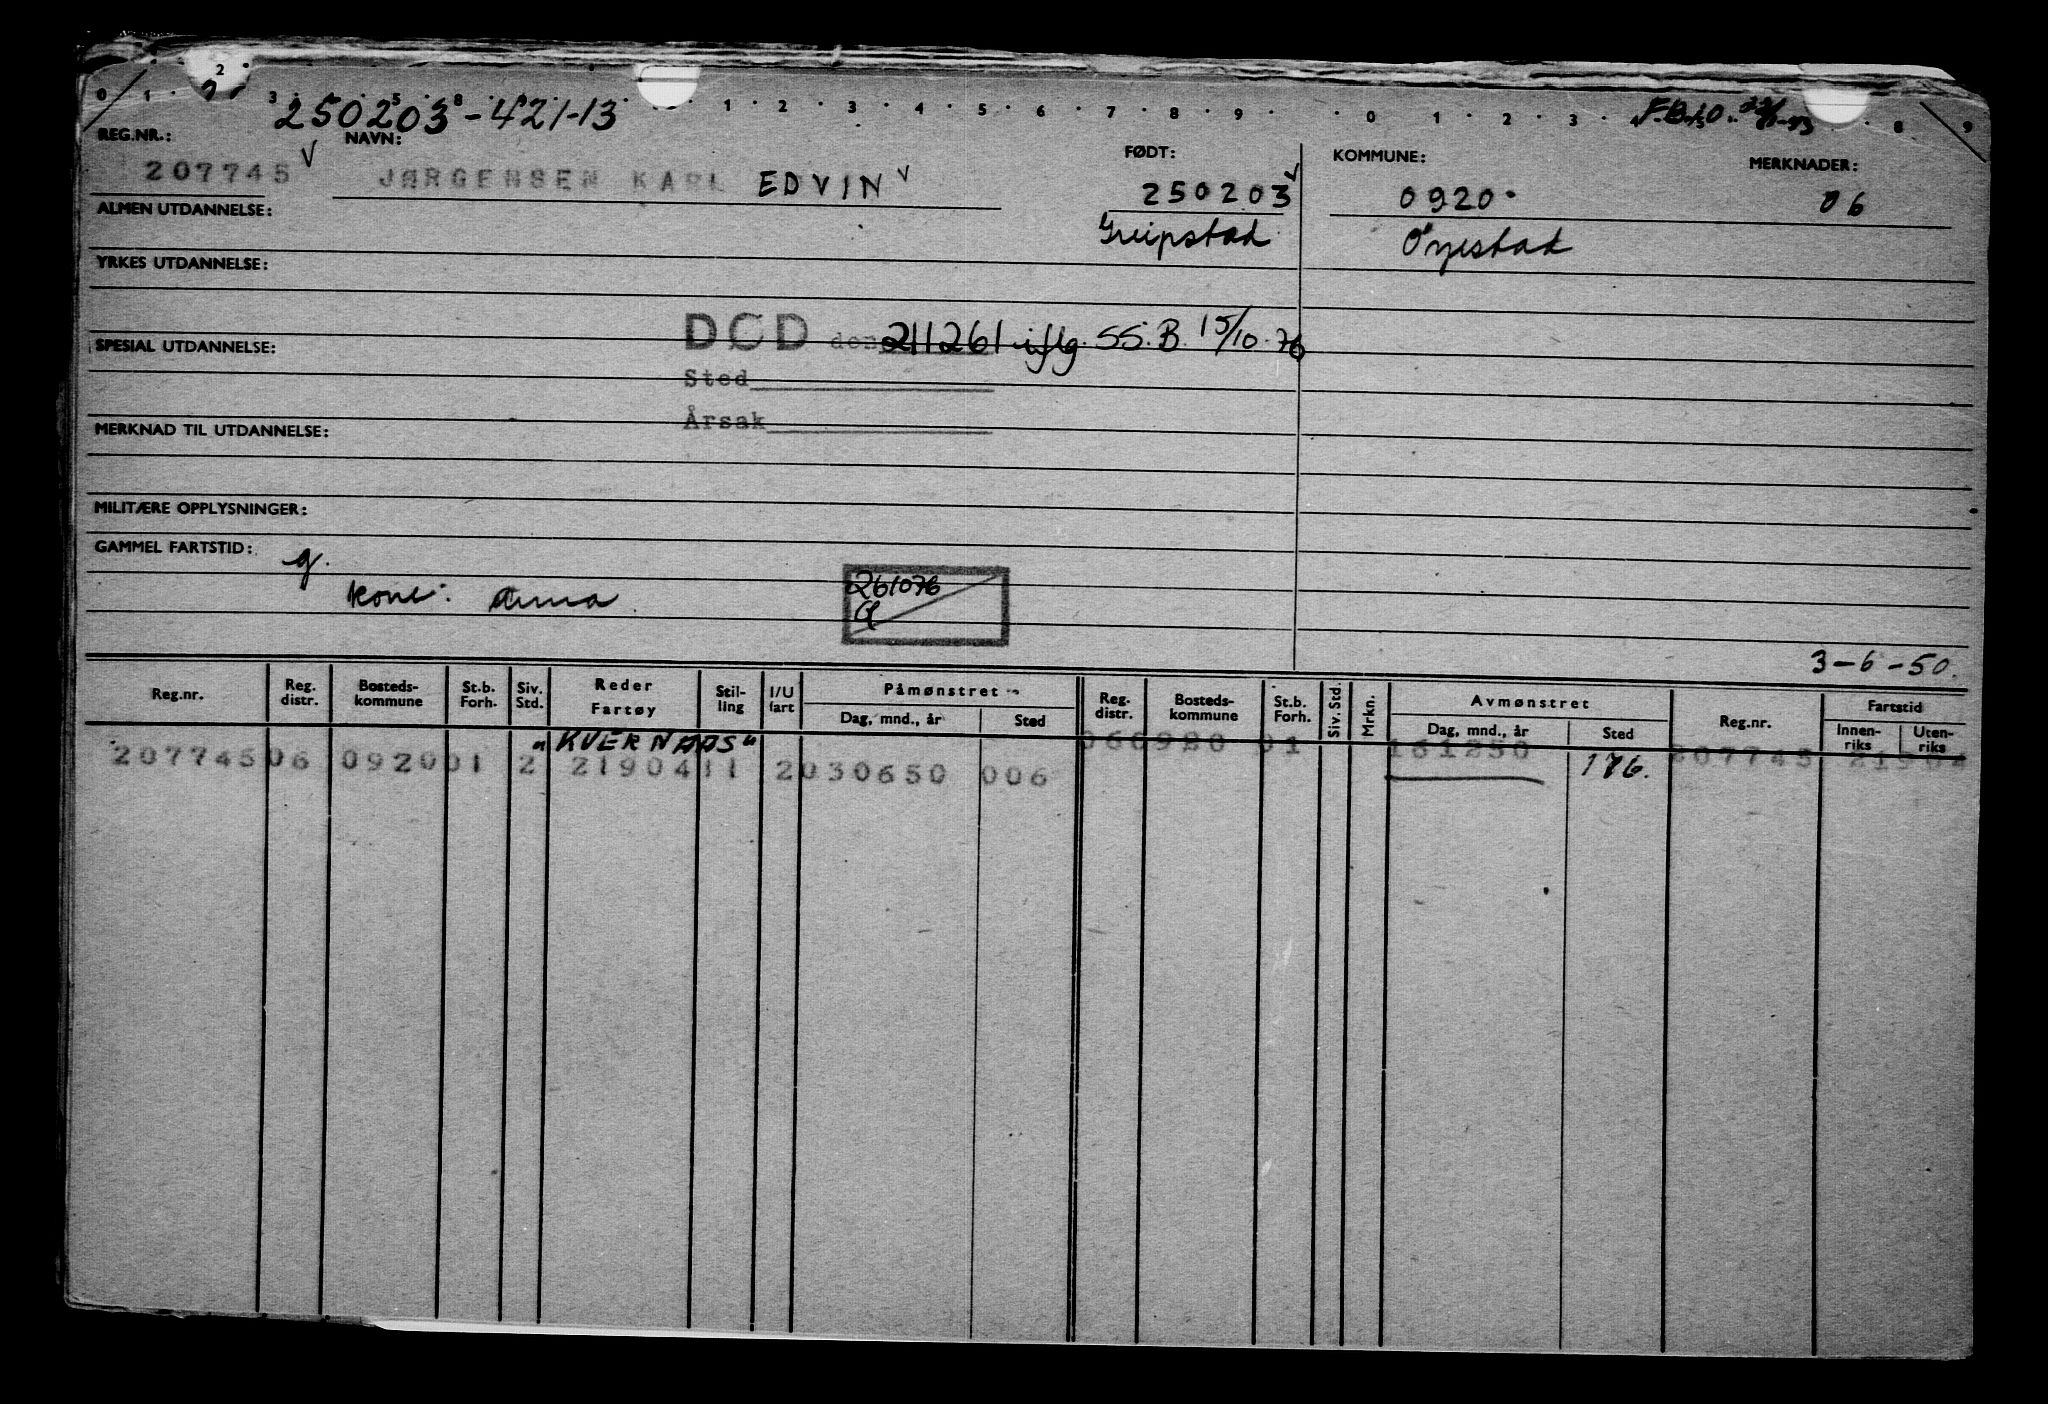 0 1 2 3 5 8 1 2 3 4 5 6 7 8 9 0 1 2 3 8 9
250203-421-13
REG.NR.: NAVN: FØDT: KOMMUNE: MERKNADER:
207745 V JØRGENSEN KARL EDVIN V 250203 V 0920 06
ALMEN UTDANNELSE: Greipstad Øyestad
YRKES UTDANNELSE:
SPESIAL UTDANNELSE: DØD den 211261 iflg. SS.B. 15/10-76
Sted
Årsak
MERKNAD TIL UTDANNELSE:
MILITÆRE OPPLYSNINGER:
GAMMEL FARTSTID: g.
kone: Anna 261076
3-6-50.
Reg.nr. Reg. distr. Bosteds- kommune St.b. Forh. Siv. Std. Reder Fartøy Stil- ling I/U fart Påmønstret Dag, mnd., år Sted Reg. distr. Bosteds- kommune St.b. Forh. Siv. Std. Mrkn. Avmønstret Dag, mnd., år Sted Reg.nr. Fartstid Innen- riks Uten- riks
"KVERNAAS"
207745 06 0920 01 2 21904 11 2 030650 006 06 0920 01 161250 176. 207745 21904